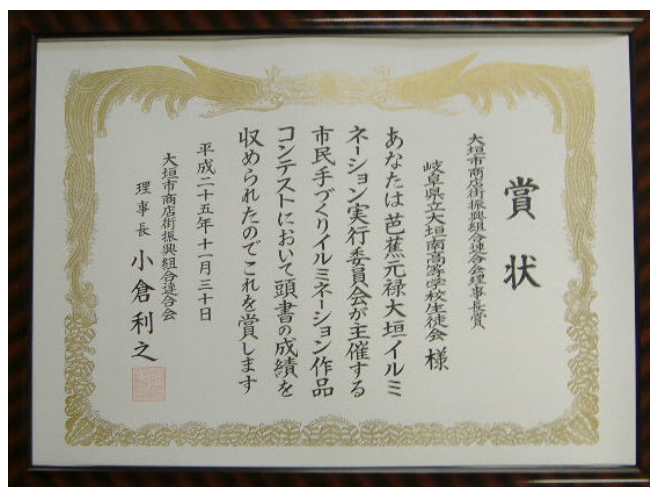 賞状
大垣市商店街振興組合連合会理事長賞
岐阜県立大垣南高等学校生徒会 様
あなたは芭蕉元禄大垣イルミ
ネーション実行委員会が主催する
市民手づくりイルミネーション作品
コンテストにおいて頭書の成績を
収められたのでこれを賞します
平成二十五年十一月三十日
大垣市商店街振興組合連合会
理事長 小倉利之